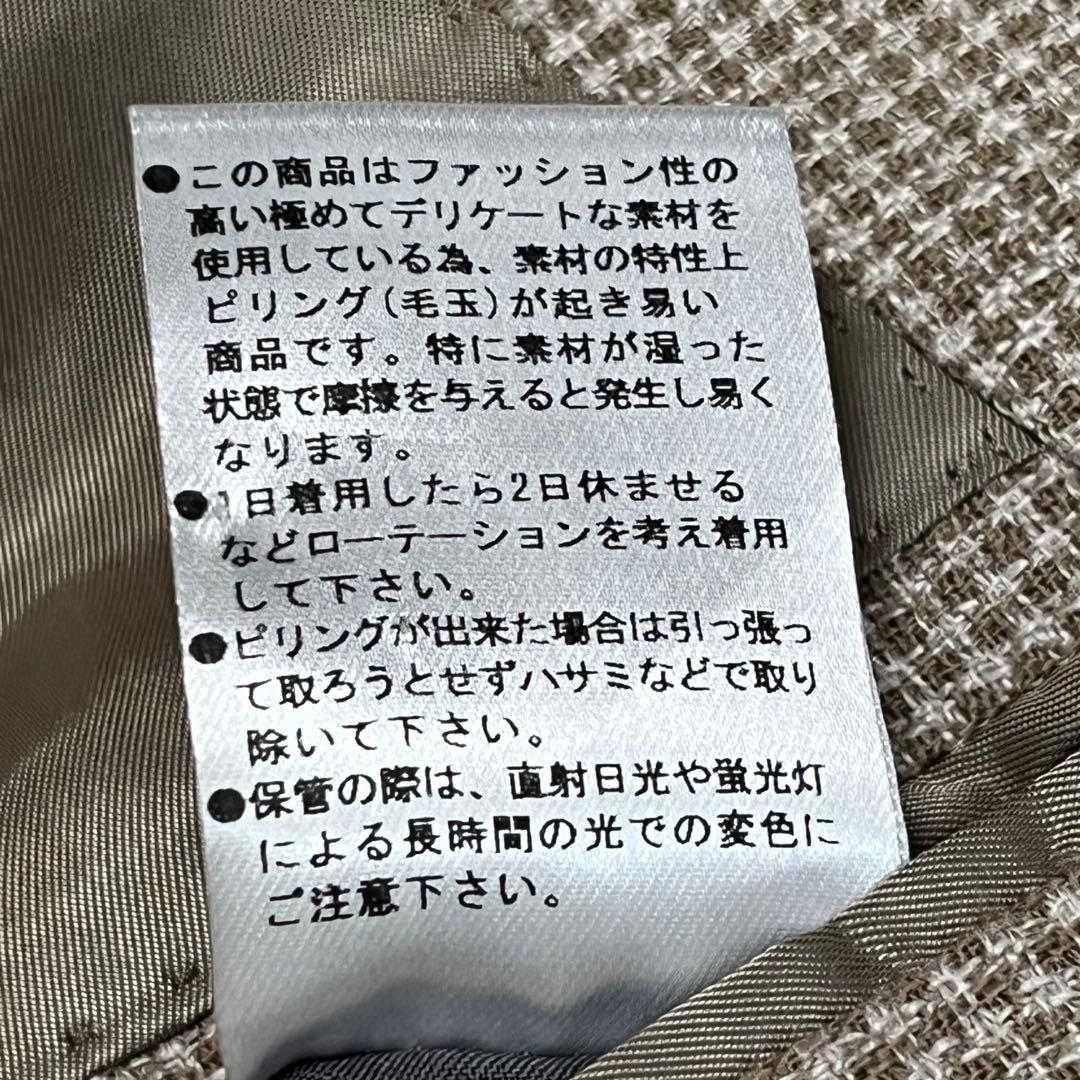 ●この商品はファッション性の
高い極めてデリケートな素材を
使用している為、素材の特性上
ピリング(毛玉)が起き易い
商品です。特に素材が湿った
状態で摩擦を与えると発生し易く
なります。
●1日着用したら2日休ませる
などローテーションを考え着用
して下さい。
●ピリングが出来た場合は引っ張っ
て取ろうとせずハサミなどで取り
除いて下さい。
●保管の際は、直射日光や蛍光灯
による長時間の光での変色に
ご注意下さい。